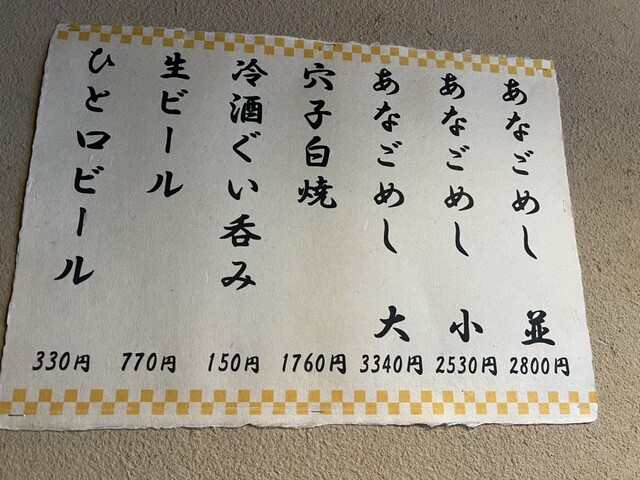 あなごめし 並 2800円
あなごめし 小 2530円
あなごめし 大 3340円
穴子白焼 1760円
冷酒ぐい呑み 150円
生ビール 770円
ひと口ビール 330円